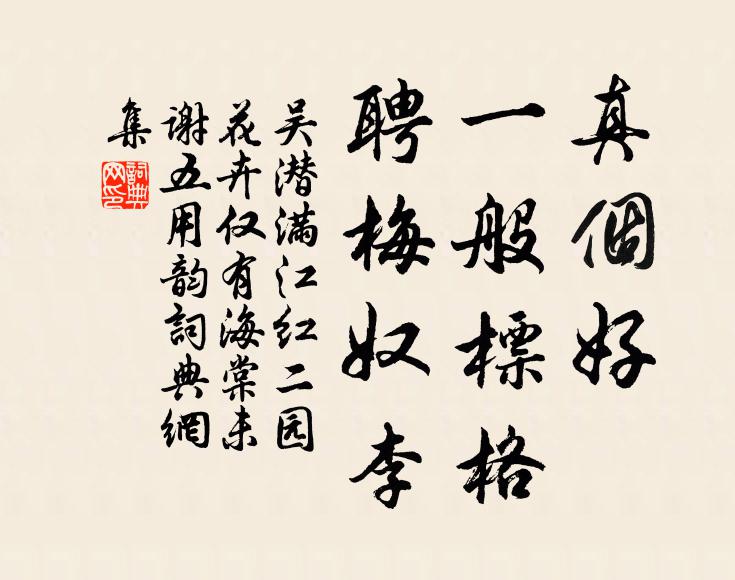 真個好
一般標格
聘梅奴李
吴潜满江红二园
花卉仅有海棠未
谢五用韵詞典網
集
詞典
网印